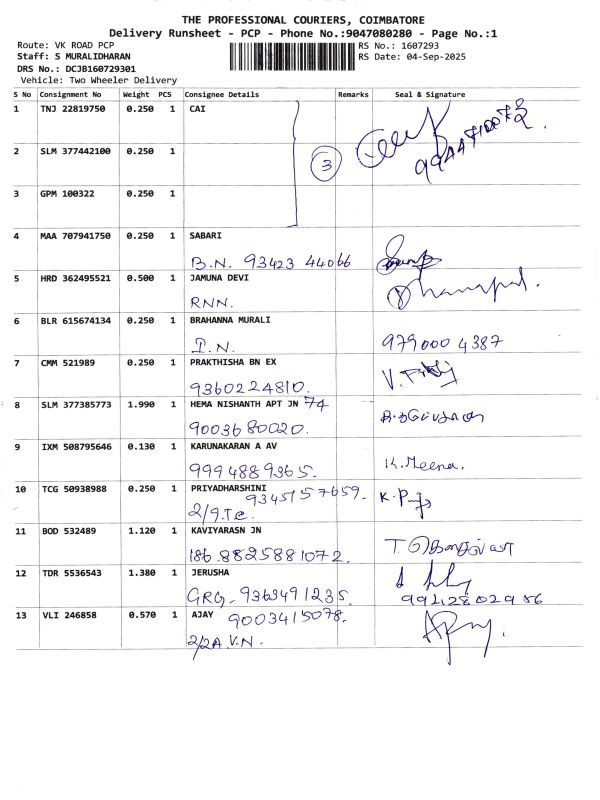 THE PROFESSIONAL COURIERS, COIMBATORE
Delivery Runsheet - PCP - Phone No.:9047080280 - Page No.:1
Route: VK ROAD PCP
RS No.: 1607293
Staff: S MURALIDHARAN
RS Date: 04-Sep-2025
DRS No.: DCJB160729301
Vehicle: Two Wheeler Delivery
S No Consignment No Weight PCS Consignee Details Remarks Seal & Signature
1 TNJ 22819750 0.250 1 CAI
2 SLM 377442100 0.250 1
3
3 GPM 100322 0.250 1
4 MAA 707941750 0.250 1 SABARI
B.N. 93423 44066
5 HRD 362495521 0.500 1 JAMUNA DEVI
RNN. Dhanapal.
6 BLR 615674134 0.250 1 BRAHANNA MURALI
I.N. 979000 4387
7 CMM 521989 0.250 1 PRAKTHISHA BN EX
9360224810.
8 SLM 377385773 1.990 1 HEMA NISHANTH APT JN 74
9003680020.
9 IXM 508795646 0.130 1 KARUNAKARAN A AV
9994889365. K.Meena.
10 TCG 50938988 0.250 1 PRIYADHARSHINI
9345157659.
11 BOD 532489 1.120 1 KAVIYARASN JN
186. 8825881072.
12 TDR 5536543 1.380 1 JERUSHA
GRG. 9363491235.
13 VLI 246858 0.570 1 AJAY 9003415078.
2/2A V.N.